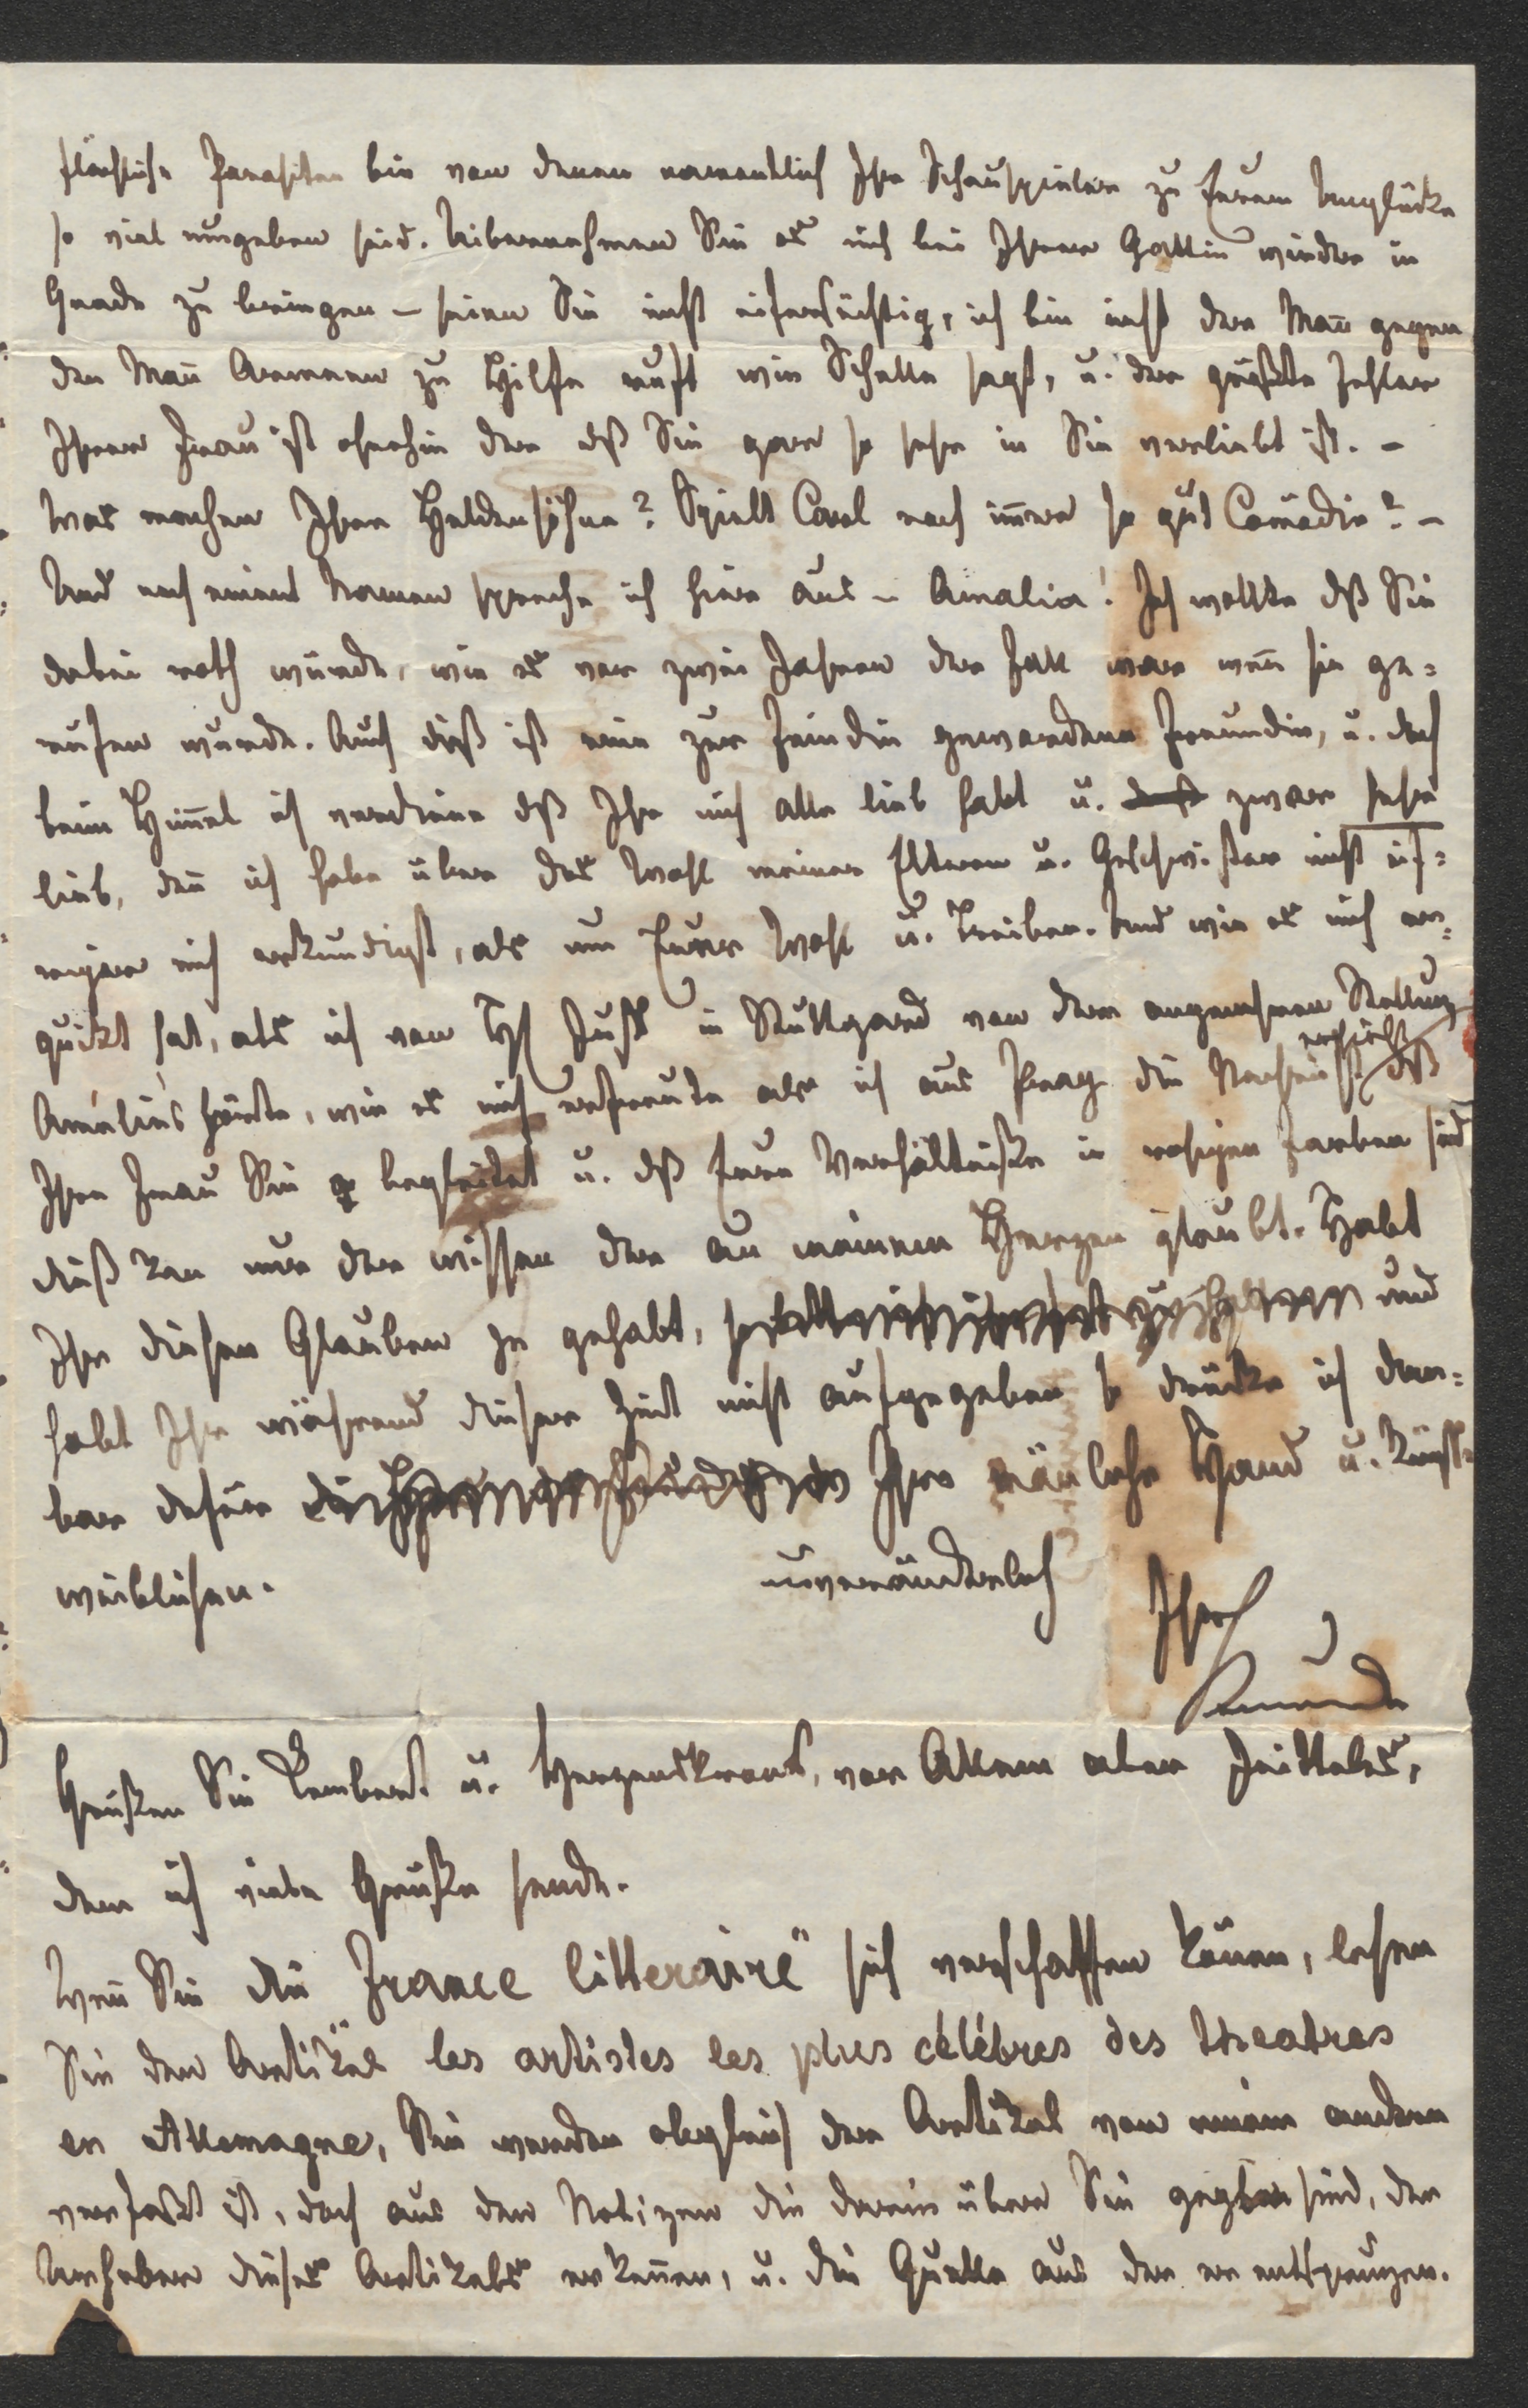 flächliche Parasiten bin von denen namentlich Ihr Schauspieler zu Eurem Unglücke
so viel umgeben seid. Uibernehmen Sie es mich bei Ihrer Gattin wieder in
Gnade zu bringen – seien Sie nicht eifersüchtig, ich bin nicht der Mañ gegen
den Mañ zu Hilfe ruft wie Schelle sagt, u. der größte Fehler
Ihrer Frau ist ohnehin der dß Sie gar so sehr in Sie verliebt ist. –
Was machen Ihre Heldensöhne? Spielt Carl noch im̄er so gut Comödie? –
Und noch einen Namen spreche ich hier aus – Amalia! Ich wollte dß Sie
dabei roth würde, wie es vor zwei Jahren der Fall war weñ sie ge=
rufen wurde. Auch dieß ist eine zur Feindin gewordene Freundin, u. doch
beim Him̄el ich verdiene dß Ihr mich alle lieb habt u. zwar sehr
lieb, deñ ich habe über das Wohl meiner Eltern u. Geschwister nicht
mich erkundigt, als um Euer Wohl u. Treiben. Und wie es mich er=
quikt hat, als ich von H Just in Stuttgard von der angenehmen Stellung
Amalies hörte, wie es mich erfreute als ich aus Prag die Nachricht erhielt dß
Ihre Frau Sie begleitet u. dß Eure Verhältniße in rosigen Farben sind
dieß kan nur der wissen der an meinem Herzen glaubt. Habt
Ihr diesen Glauben je gehabt, und
habt Ihr während dieser Zeit nicht aufgegeben so drücke ich dan=
bar dafür Ihre mänliche Hand u. küsse
weiblichen.
unveränderlich
Ihr
Kuranda
Grüßen Sie Lembert u. Herzenskron, vor Allem aber Jeitteles,
dem ich viele Grüße sende.
Weñ Sie die France litteraire" sich verschaffen köñen, lesen
Sie den Artikel les artistes les plus célébres des theatres
en Allemagne, Sie werden obgleich der Artikel von einem andern
verfaßt ist, doch aus den Notizen die darin über Sie gegeben sind, den
Urheber dieses Artikels erkeñen, u. die Quelle aus der er entsprungen.